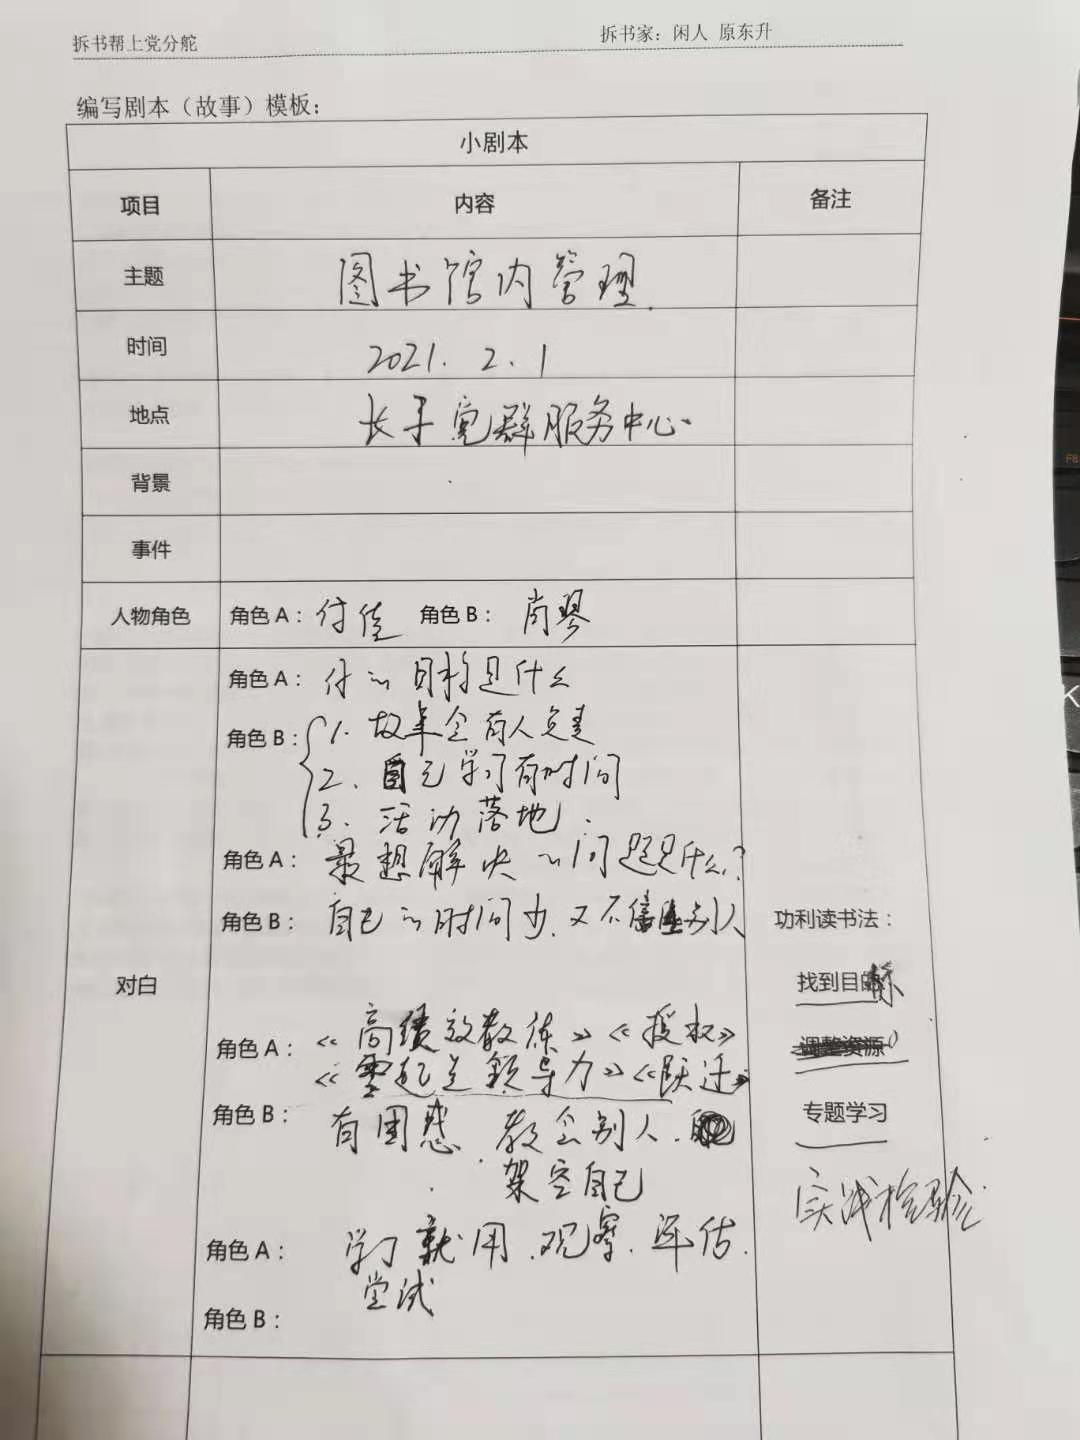 拆书帮上党分舵
拆书家：闲人 原东升
编写剧本（故事）模板：
小剧本
项目 内容 备注
主题 图书馆内管理.
时间 2021. 2. 1
地点 长子党群服务中心.
背景
事件
人物角色 角色 A：付佳 角色 B：尚琴
角色 A：你的目标是什么
角色 B：1. 故事会有人负责
2. 自己学习有时间
3. 活动落地.
角色 A：最想解决的问题是什么？
角色 B：自己的时间少. 又不信别人
功利读书法：
对白
找到目标
角色 A：《高绩效教练》《授权》
调整资源
《零起点领导力》《跃迁》
角色 B：有困惑. 教会别人.
专题学习
架空自己
实践检验.
角色 A：学了就用. 观察. 评估.
尝试
角色 B：
F8
K